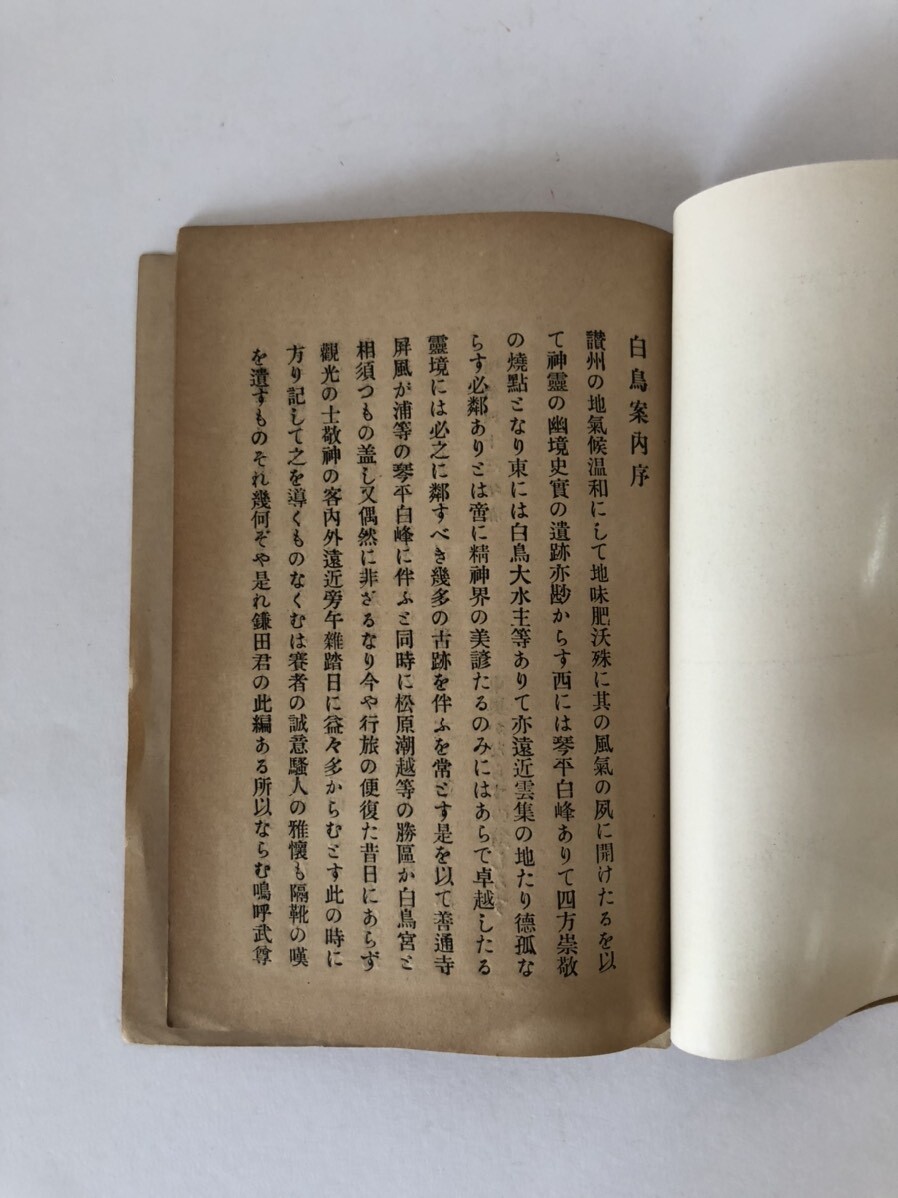 白鳥案内序
讃州の地氣候温和にして地味肥沃殊に其の風氣の夙に開けたるを以
て神靈の幽境史實の遺跡亦尠からす西には琴平白峰ありて四方崇敬
の燒點となり東には白鳥大水主等ありて亦遠近雲集の地たり德孤な
らす必鄰ありとは啻に精神界の美諺たるのみにはあらで卓越したる
靈境には必之に鄰すべき幾多の古跡を伴ふを常とす是を以て善通寺
屏風が浦等の琴平白峰に伴ふと同時に松原潮越等の勝區か白鳥宮と
相須つもの盖し又偶然に非ざるなり今や行旅の便復た昔日にあらず
觀光の士敬神の客內外遠近旁午雜踏日に益々多からむとす此の時に
方り記して之を導くものなくむは賽者の誠意騷人の雅懷も隔靴の嘆
を遺すものそれ幾何ぞや是れ鎌田君の此編ある所以ならむ嗚呼武尊